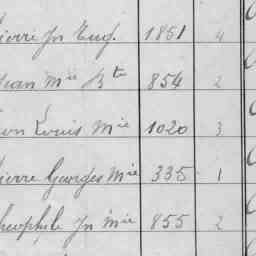 ierre Jn Eug. 1851 4
Jean Mie Bte 854 2
on Louis Mie 1020 3
ierre Georges Mie 335 1
heophile Jn Mie 855 2